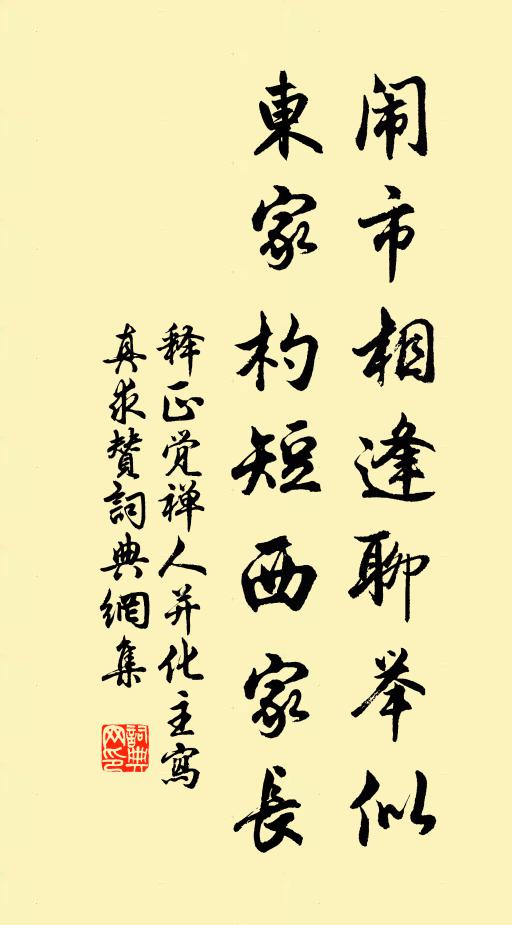 闹市相逢聊举似
東家杓短西家長
释正觉禅人并化主寫
真求赞詞典網集
詞典网印